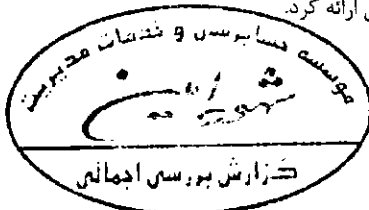 ارائه کرد.
موسسه حسابرسی و خدمات مدیریت
گزارش بررسی اجمالی